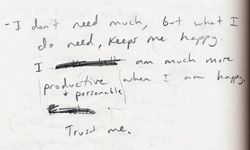 -I don't need much, but what I
do need, keeps me happy.
I am much more
productive when I am happy.
+ personable
Trust me.